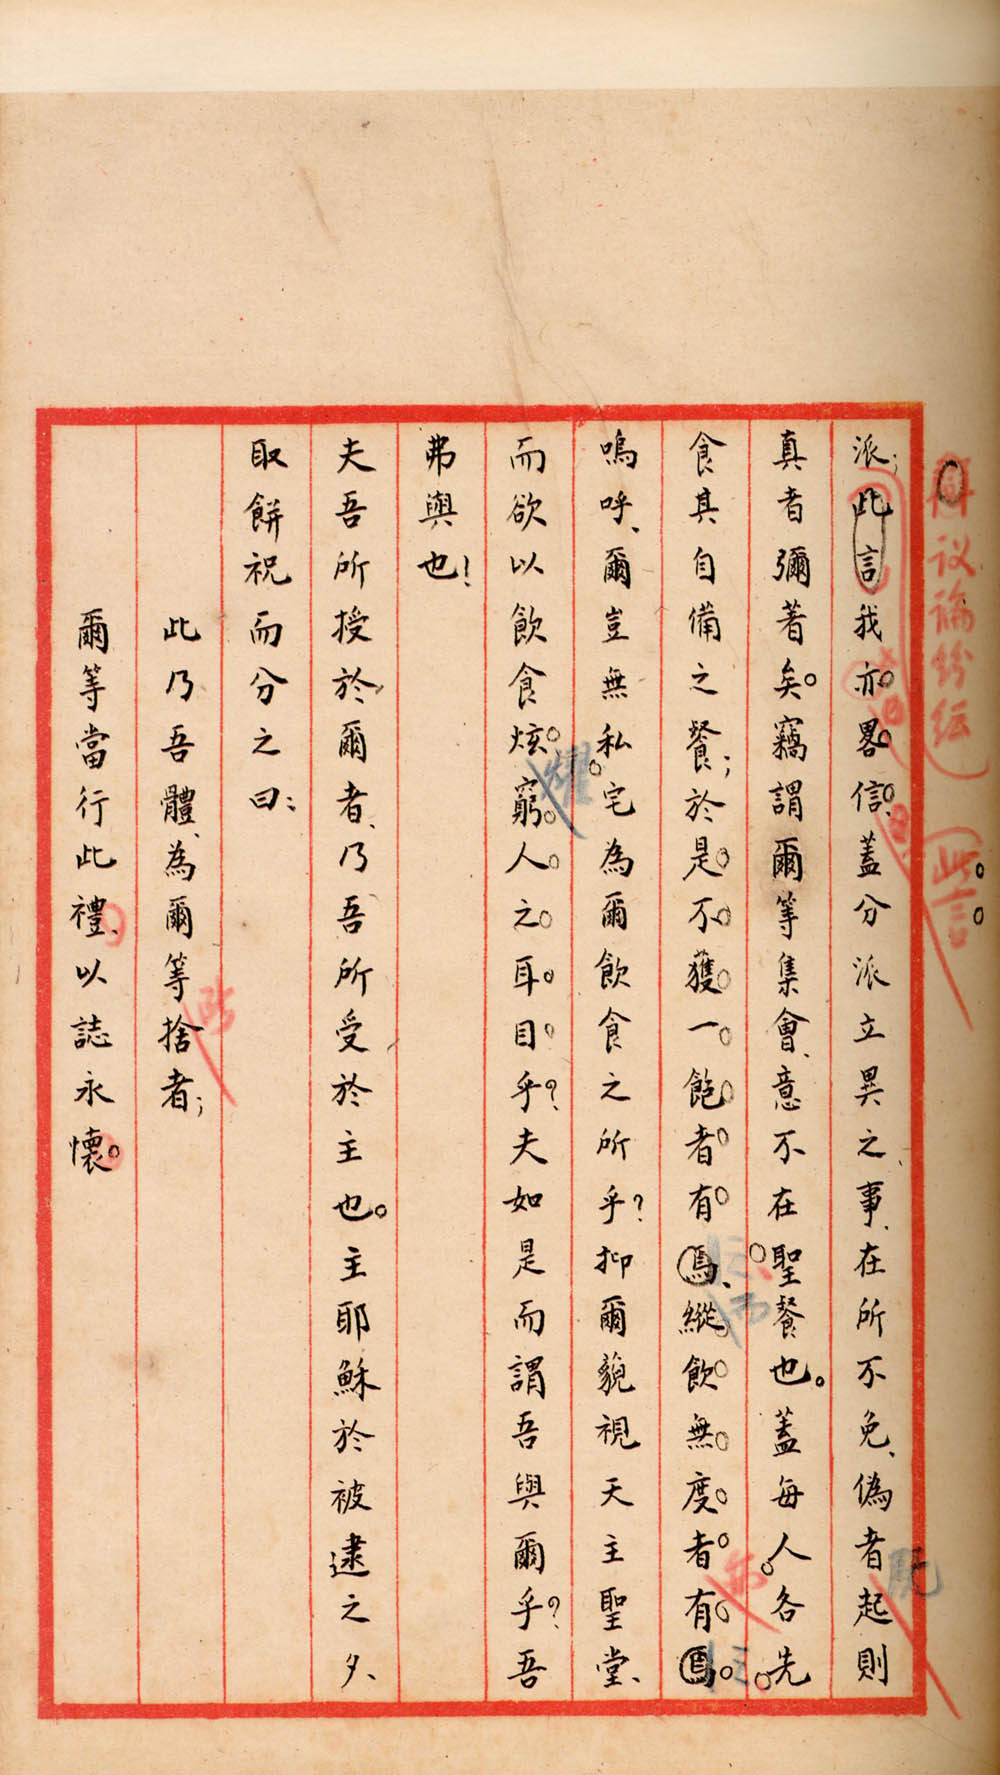 議論紛紜
此言
派;此言我亦畧信、蓋分派立異之事、在所不免、偽者起則
既
真者彌著矣。竊謂爾等集會、意不在聖餐也。蓋每人各先
食其自備之餐;於是不獲一飽者有焉、縱飲無度者有焉。
嗚呼、爾豈無私宅為爾飲食之所乎?抑爾藐視天主聖堂、
而欲以飲食炫窮人之耳目乎?夫如是而謂吾與爾乎?吾
耀
弗與也!
夫吾所授於爾者、乃吾所受於主也。主耶穌於被逮之夕、
取餅祝而分之曰:
此乃吾體、為爾等捨者;
所
爾等當行此禮、以誌永懷。